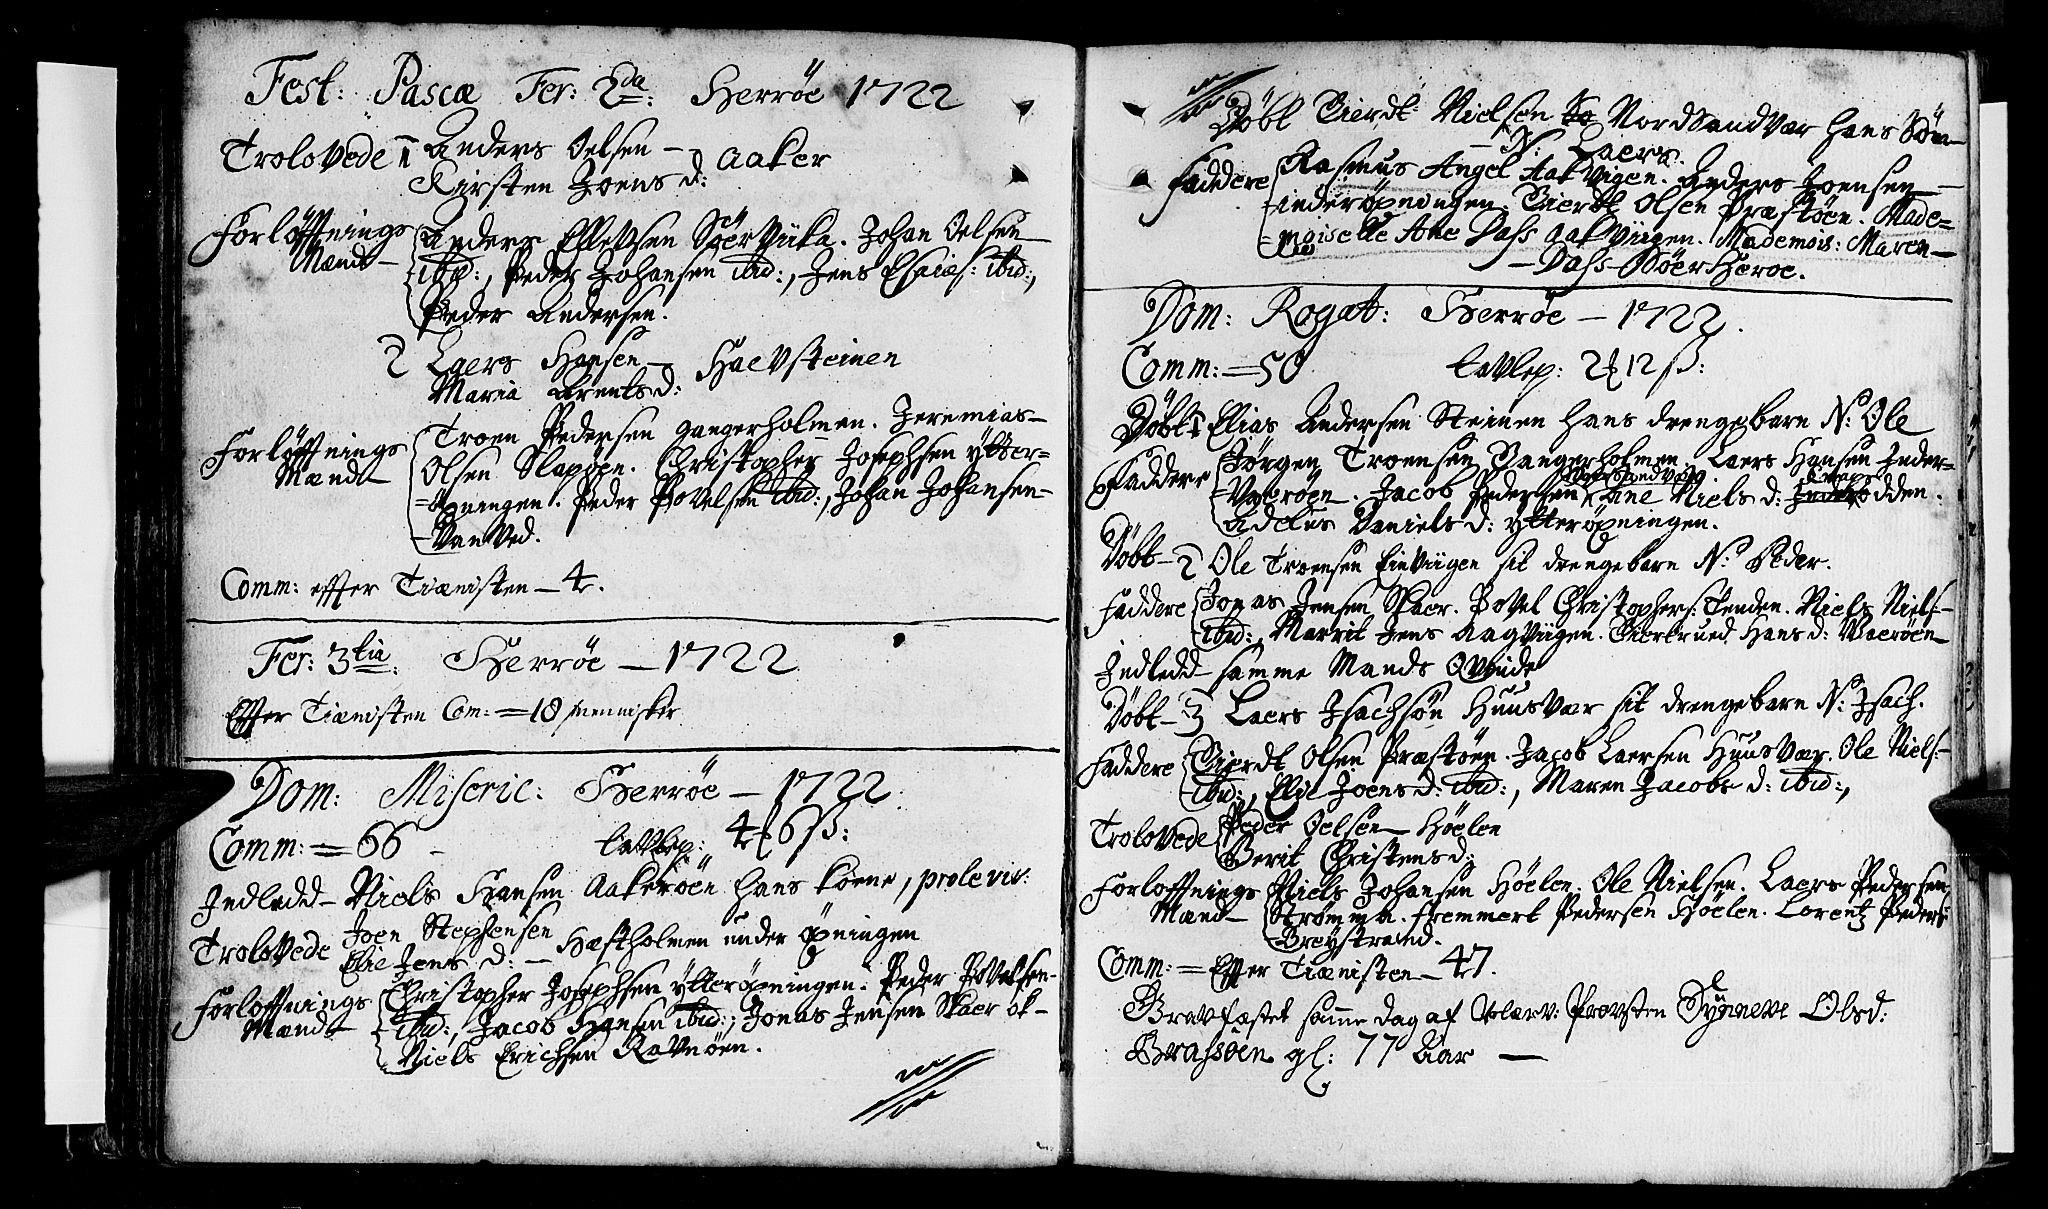 Fest: Pascæ Fer: 2da: Herröe 1722
Trolovede 1 Anders Oelsen — Aaker
Kirsten Joens d:
Forlöffnings Anders Ellevsen Söer Viika. Johan Oelsen
Mænd — ibid:, Peder Johansen ibid:, Jens Esaiæs: ibid:,
Peder Andersen.
2 Laers Hansen — Haevsteinen
Maria Arents d:
Forlöffnings Troen Pedersen gangerholmen. Jeremias
Mænd — Olsen Slapöen. Christopher Josephsen ytter=
=öpningen. Peder Povelsen ibid:, Johan Johansen
Van Ved.
Comm: effter Tiænisten — 4.
Fer: 3tia: Herröe — 1722
Effter Tiænisten Com: = 18 mennisker
Dom: Miseric: Herröe — 1722
Comm: = 66 — tavlep: 4 ℔ 6 ß:
Indledd — Niels Hansen Aakeröen hans kone, prole viv:
Trolovede Joen Stephensen
Elie Jens d: — Hæstholmen under öpningen
Forloffnings Christopher Josephsen ytteröpningen. Peder Povelsen
Mænd — ibid:, Jacob Hansen ibid:, Jonas Jensen Skaer ok
Niels Erichsen Ravnöen.
Döbt Gierdt Nielsen Nordsandvær hans Sön
N: Laers.
Faddere Rasmus Angel Aakvigen. Anders Joensen
inderöpningen. Gierdt Olsen Præstöen. Made=
=moiselle Ane Dass Aakviigen. Mademois: Maren
— Dass Söer Heroe.
Dom: Rogat: Herröe — 1722.
Comm: = 50 tavlep: 2 ℔ 12 ß:
Döbt 1 Elias Andersen Steinen hans drengebarn N: Ole
Faddere Jörgen Troensen Gangerholmen. Laers Hansen Inder=
Væröen. Jacob Pedersen Ane Niels d: odden.
Adelus Daniels d: ytteröpningen.
Döbt — 2 Ole Troensen Einviigen sit drengebarn N: Peder.
Faddere Jonas Jensen Skaer. Povel Christophers: Tenden. Niels Niels:
ibid:, Marrit Jens Aagviigen. Giertrued Hans d: Væröen
Indledd — samme Mands Qvinde
Döbt — 3 Laers Isachsön Huusvær sit drengebarn N: Isach.
Faddere Gierdt Olsen Præstöen. Jacob Laersen Huusvær. Ole Niels:
ibid:, Elie Joens d: ibid:, Maren Jacobs d: ibid:,
Trolovede Peder Oelsen — Höelen
Berit Christens d:
Forloffnings Niels Johansen Höelen. Ole Nielsen. Laers Pedersen
Mænd — Strömmen. Fremmert Pedersen Höelen. Lorentz Peders:
Breystrand.
Comm: = Effter Tiænisten — 47.
Gravfæstet samme dag af Velærv: Provsten Synneve Olsd:
Brasöen gl: 77 Aar —